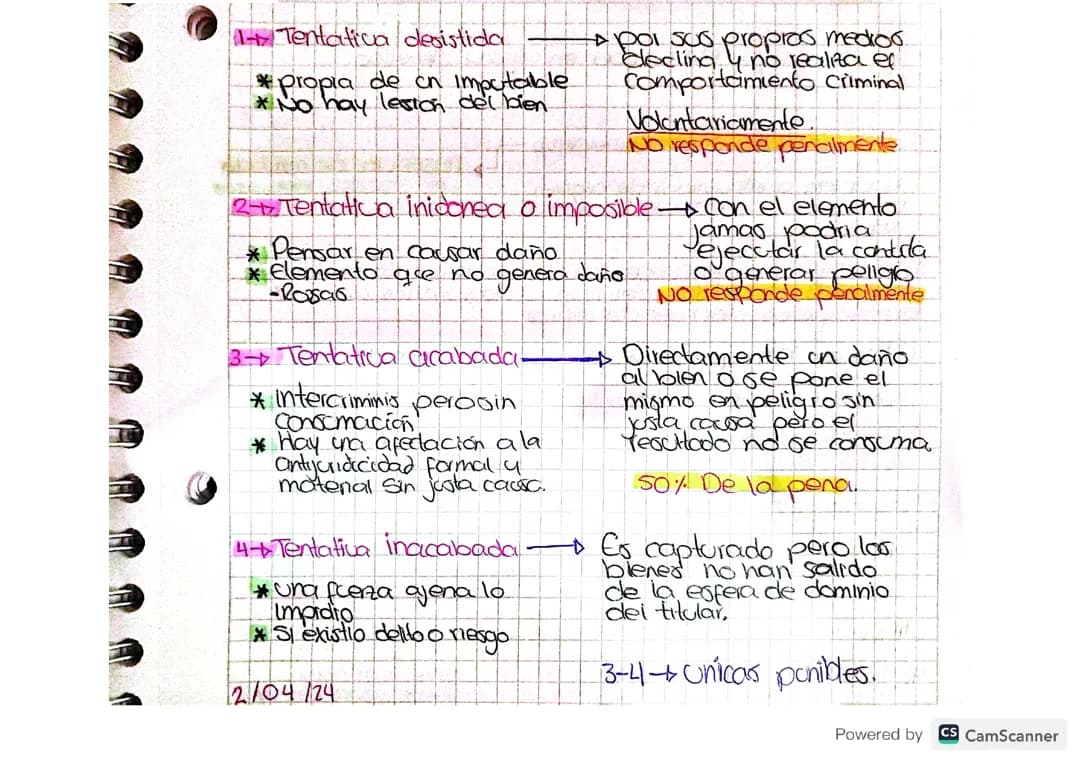 1→ Tentativa desistida → por sus propros medios
declina, y no realiza el
* propia de un imputable comportamiento criminal
* No hay lesion del bien
Voluntariamente.
No responde penalmente
2→ Tentativa inidonea o imposible → con el elemento
jamas podria
* Pensar en causar daño ejecutar la conducta
* Elemento que no genera daño o generar peligro
-Rosas NO responde penalmente
3→ Tentativa acabada → Directamente un daño
al bien o se pone el
* Intercriminis pero sin mismo en peligro sin
consumación justa causa pero el
* Hay una afectación a la resultado no se consuma
antijuridicidad formal y
material sin justa causa. 50% De la pena.
4→ Tentativa inacabada → Es capturado pero los
bienes no han salido
* una fuerza ajena lo de la esfera de dominio
impidio del titular.
* Si existio delito o riesgo
3-4→ unicas punibles.
2/04/24
Powered by CS CamScanner